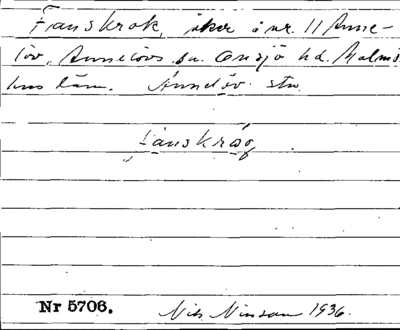 Fanskrok, åker å nr. 11 Anne-
löv, Annelövs sn. Onsjö hd. Malmö-
hus län. Annelöv stn.
fánskråg
Nr 5706. Nils Nilsson 1936.